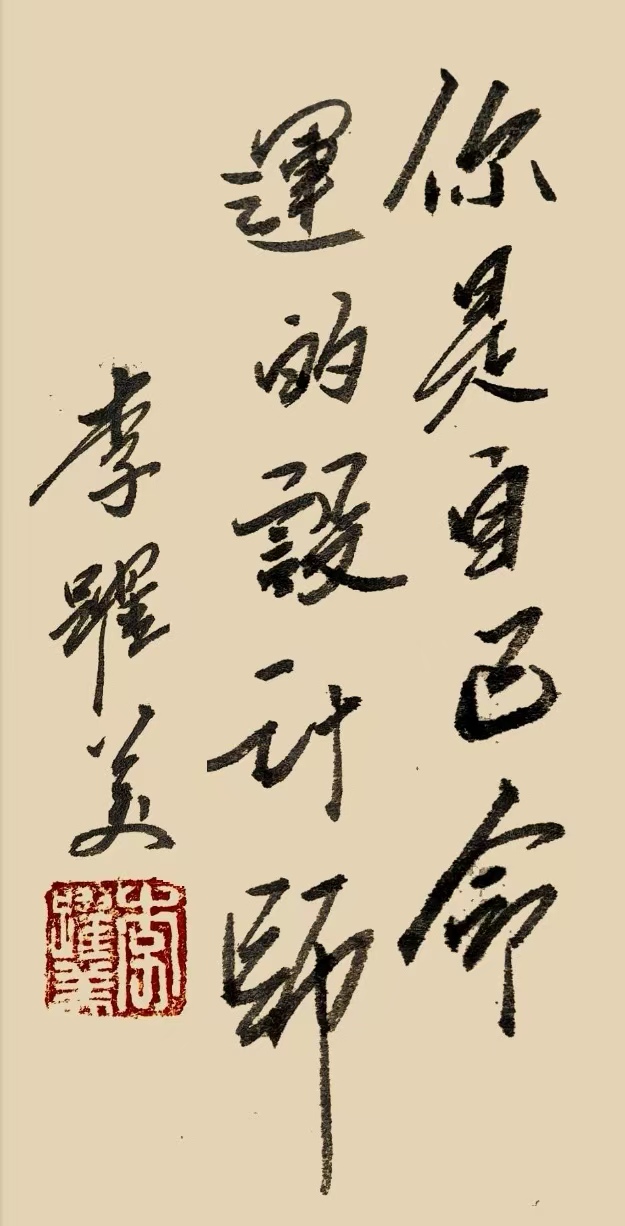 你是自己命
運的設計師
李躍美
李躍美